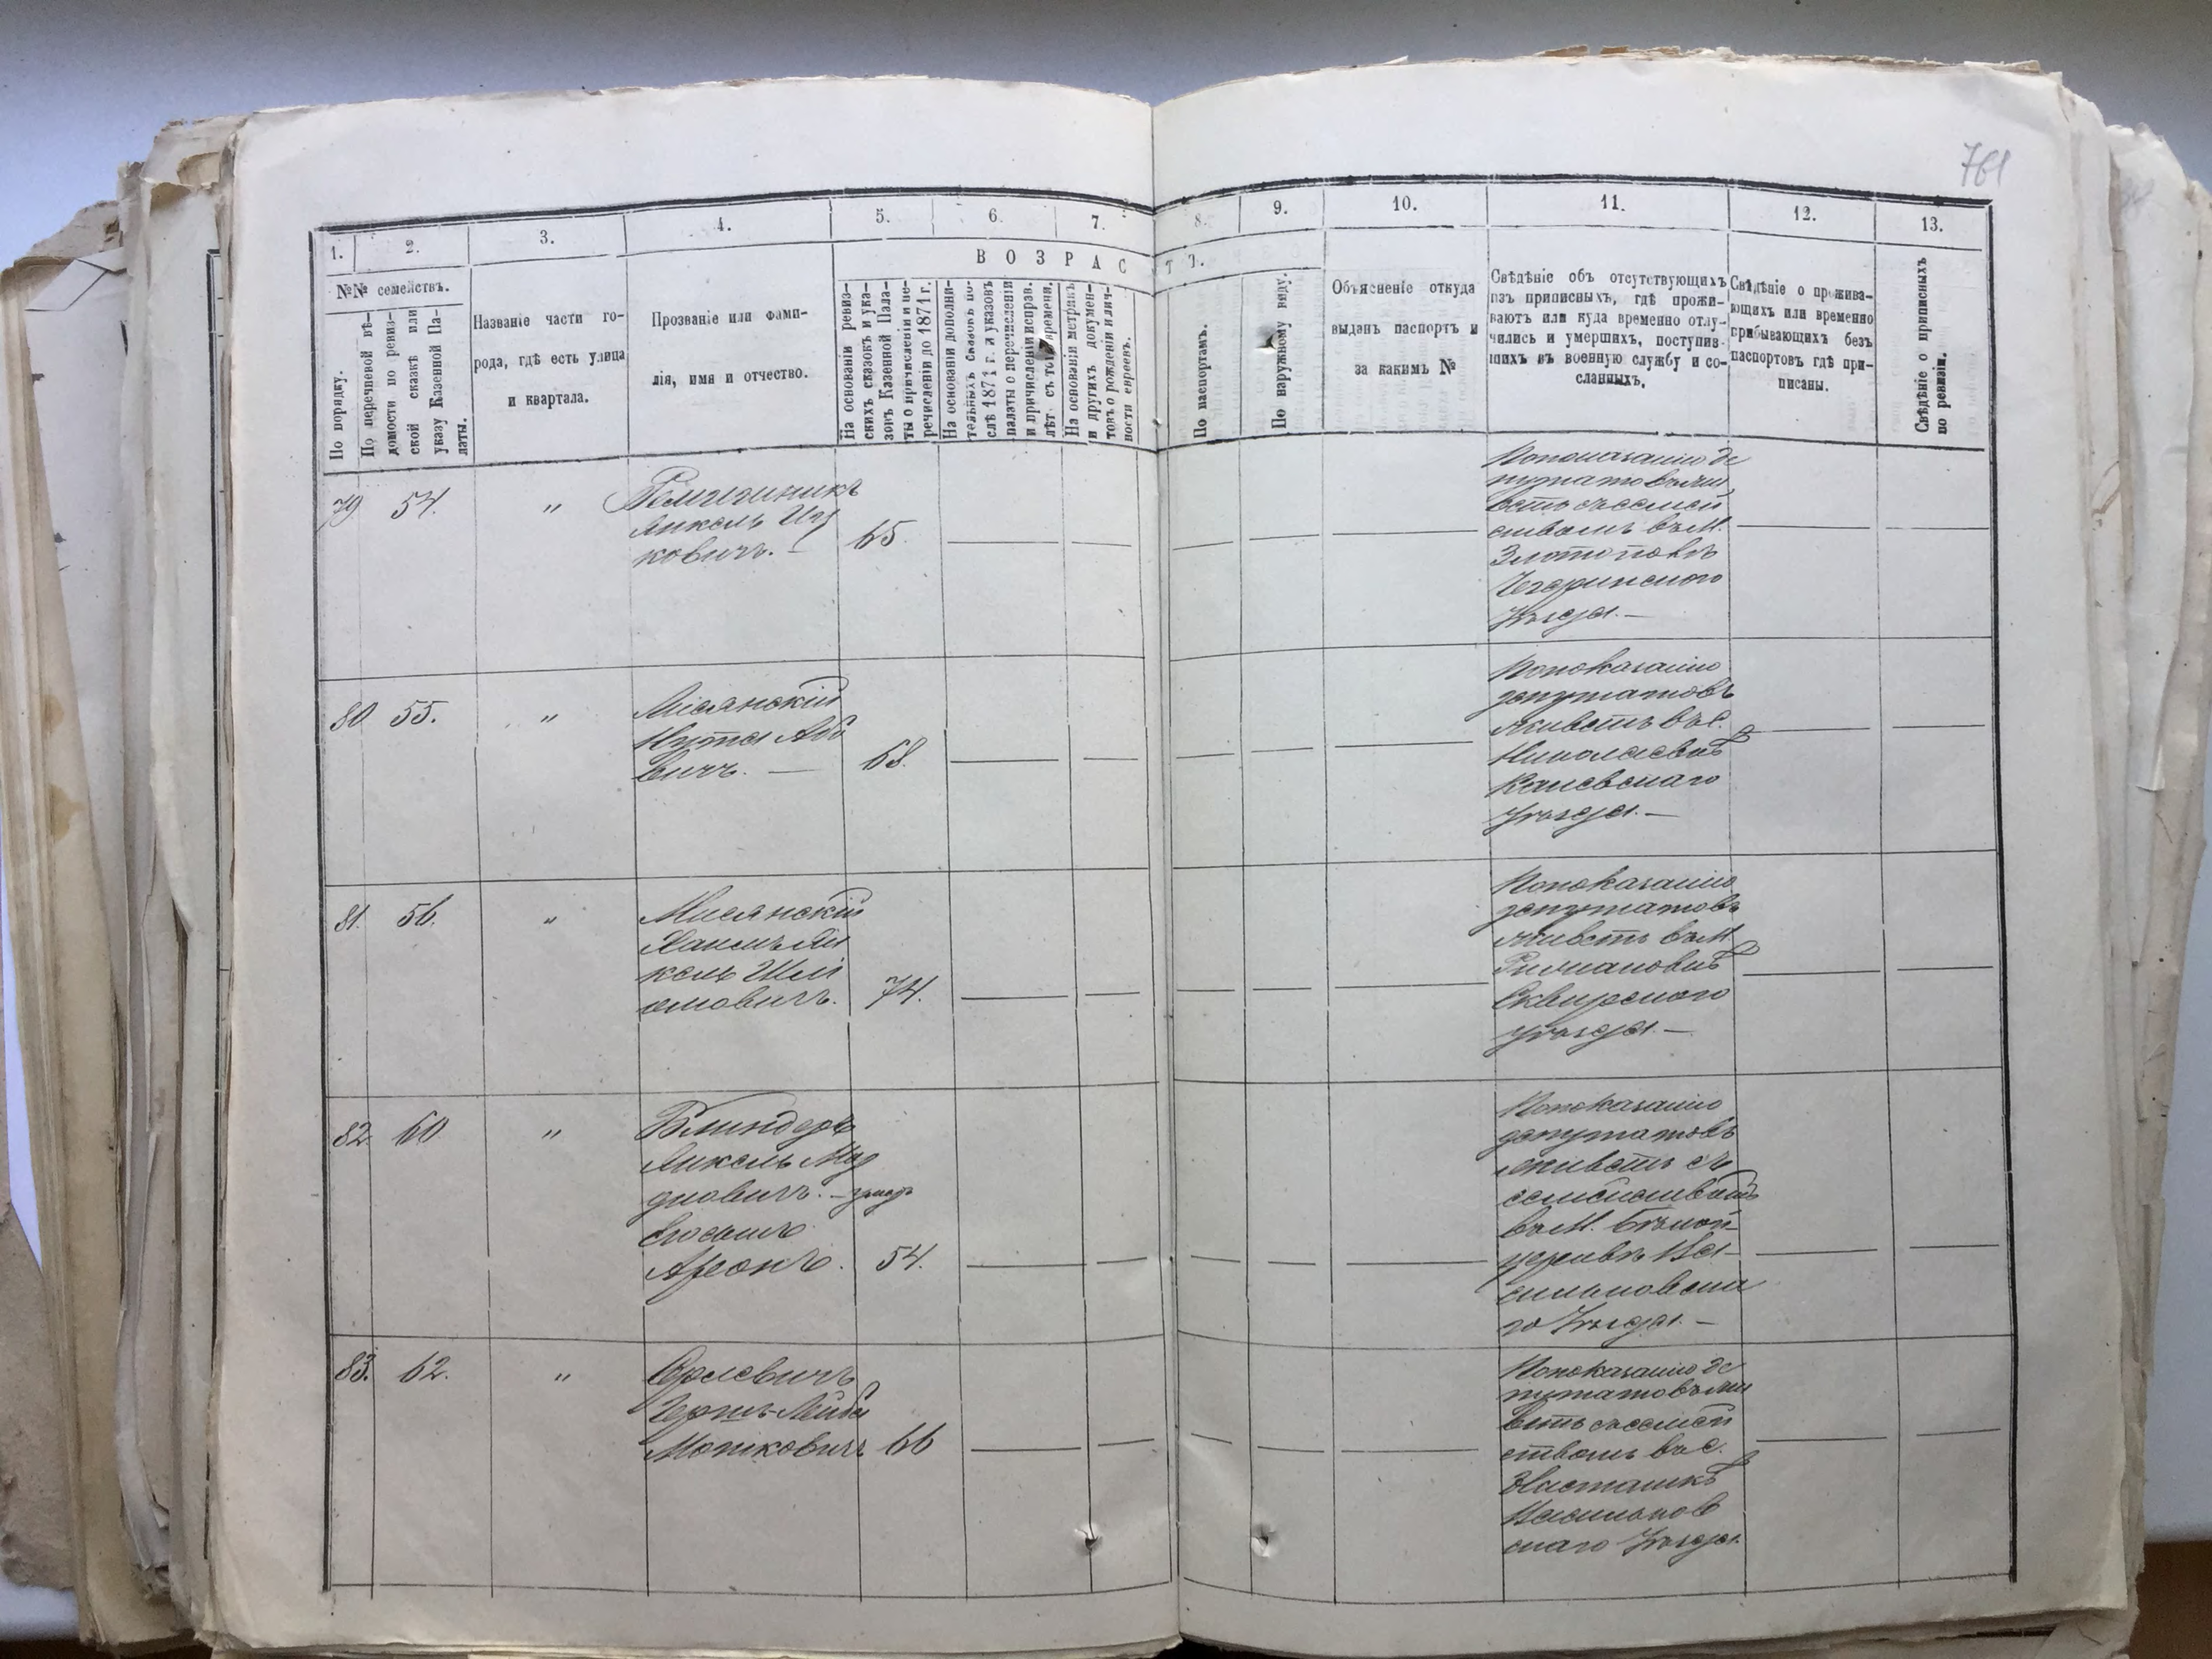 761
1.
2.
3.
4.
5.
6.
7.
8.
9.
10.
11.
12.
13.
№№ семействъ.
По порядку.
По перечневой вѣ-
домости по ревиз-
ской сказкѣ или
указу Казенной Па-
латы.
Названіе части го-
рода, гдѣ есть улица
и квартала.
Прозваніе или фами-
лія, имя и отчество.
ВОЗРАСТЪ.
На основаніи ревиз-
скихъ сказокъ и ука-
зовъ Казенной Пала-
ты о причисленіи и пе-
речисленіи до 1871 г.
На основаніи дополни-
тельныхъ сказокъ по-
слѣ 1871 г. и указовъ
палаты о перечисленіи
и причисленіи исправ.
лѣт. съ того времени.
На основаніи метрикъ
и другихъ докумен-
товъ о рожденіи и лич-
ности евреевъ.
По паспортамъ.
По наружному виду.
Объясненіе откуда
выданъ паспортъ и
за какимъ №
Свѣдѣніе объ отсутствующихъ
изъ приписныхъ, гдѣ прожи-
ваютъ или куда временно отлу-
чились и умершихъ, поступив-
шихъ въ военную службу и со-
сланныхъ.
Свѣдѣніе о прожива-
ющихъ или временно
прибывающихъ безъ
паспортовъ гдѣ при-
писаны.
Свѣдѣніе о приписныхъ
по ревизіи.
79 54. "
Янкель Иц
ковичъ. — 65
Попоказанію де
путатовъ жи
ветъ съ семей
ствомъ въ М.
Златополѣ
Чегиринского
Уѣзда. —
80 55. "
Лисянскій
Нута Або
вичъ. — 68.
Попоказанію
депутатовъ
живетъ въ С.
Николаевкѣ
Каневскаго
уѣзда. —
81. 56. "
Лисянскій
Янкель Шлі
омовичъ. 74.
Попоказанію
депутатовъ
живетъ въ М.
Сквирского
уѣзда. —
82. 60 "
Блиндеръ
Янкель Мор
дковичъ.
Аронъ. 54.
Попоказанію
депутатовъ
живетъ съ
семействомъ
въ М. Бѣлой
церквѣ Ва-
сильковска
го Уѣзда. —
83. 62. "
Орлевичъ
Гершъ-Лейба
Мошковичъ 66
Попоказанію де
путатовъ жи
ветъ съ семей
ствомъ въ С.
Насташкѣ
Васильков
скаго Уѣзда.